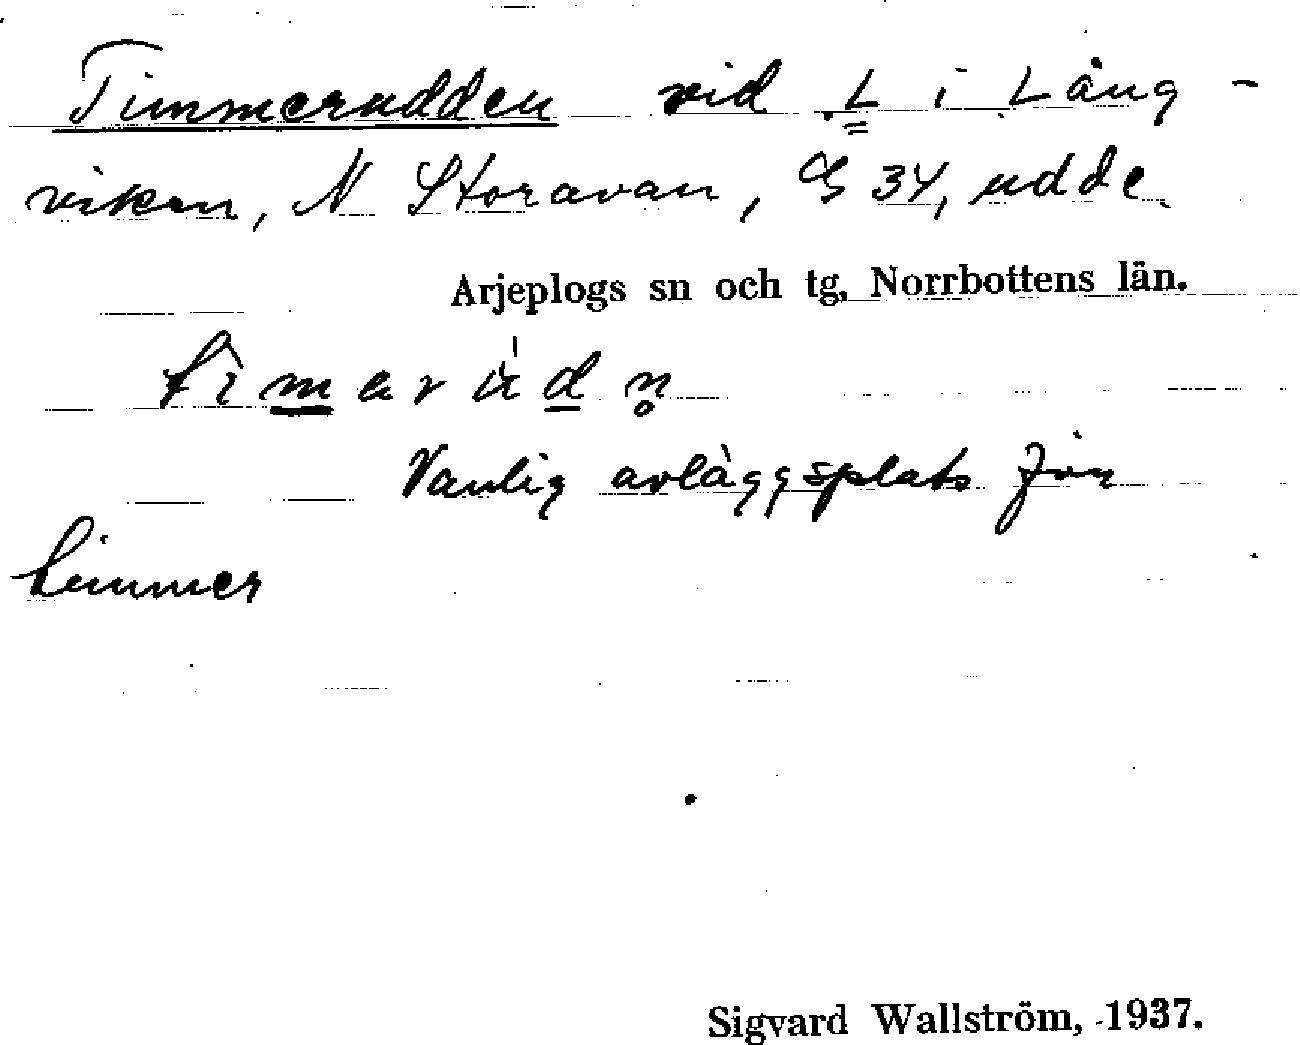 Timmerudden vid L i Lång-
viken, N Storavan, G 34, udde
Arjeplogs sn och tg, Norrbottens län.
Vanlig avläggsplats för
timmer
Sigvard Wallström, 1937.